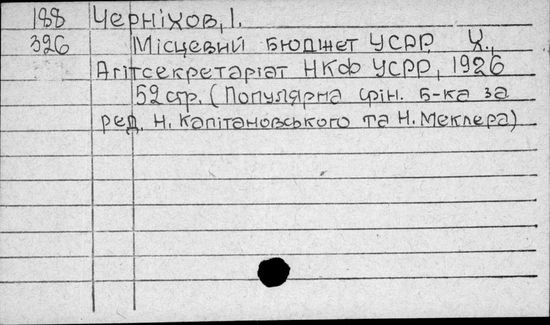 188 Черніхов, І.
326 Місцевий бюджет УСРР Х.,
Агітсекретаріат НКФ УСРР, 1926
52 стр. (Популярна фін. б-ка за
ред. Н. Капітановського та Н. Меклера)